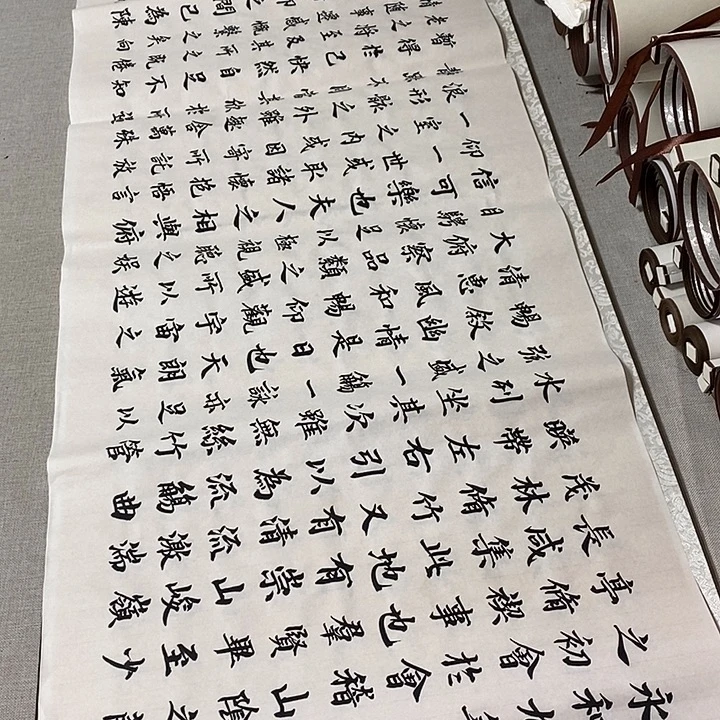 永和
之初會於會稽山陰之
亭脩禊事也羣賢畢至少
長咸集此地有崇山峻嶺
茂林脩竹又有清流激湍
暎帶左右引以為流觴曲
水列坐其次雖無絲竹管
弦之盛一觴一詠亦足以
暢敘幽情是日也天朗氣
清惠風和暢仰觀宇宙之
大俯察品類之盛所以遊
目騁懷足以極視聽之娛
信可樂也夫人之相與俯
仰一世或取諸懷抱悟言
一室之內或因寄所託放
浪形骸之外雖趣舍萬殊
靜躁不同當其欣於所遇
暫得於己快然自足不知
老之將至及其所之既倦
情隨事遷感慨係之矣向
仰之間已為陳